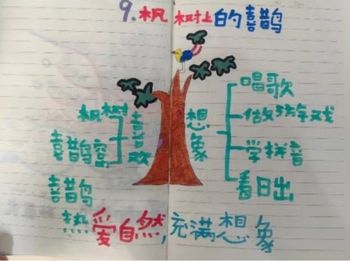 9.枫树上的喜鹊
枫树
喜鹊窝
喜鹊
喜欢
想象
唱歌
做游戏
学拼音
看日出
热爱自然,充满想象